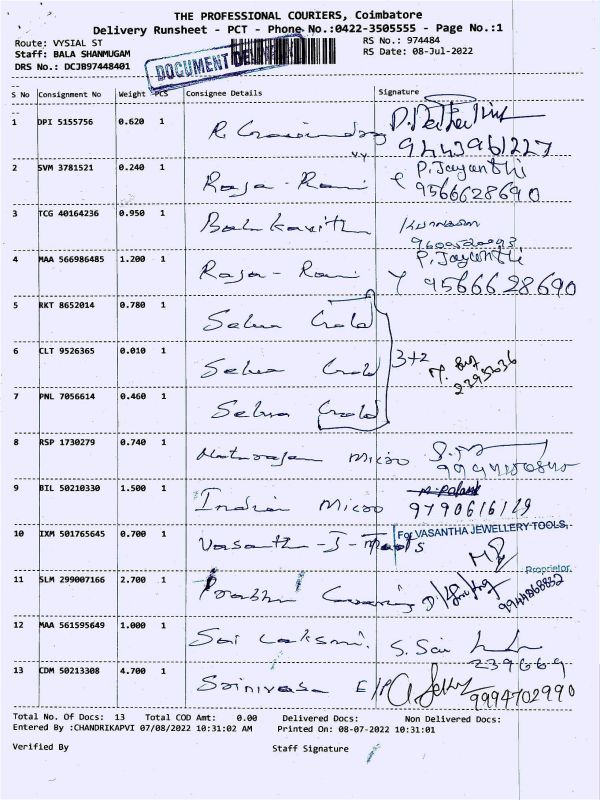 THE PROFESSIONAL COURIERS, Coimbatore
Delivery Runsheet - PCT - Phone No.:0422-3505555 - Page No.:1
Route: VYSIAL ST RS No.: 974484
Staff: BALA SHANMUGAM RS Date: 08-Jul-2022
DRS No.: DCJB97448401
DOCUMENT DELIVERY
S No Consignment No Weight PCS Consignee Details Signature
1 DPI 5155756 0.620 1
9443961227
2 SVM 3781521 0.240 1 Raja - Rani P. Jayanthi
9566628690
3 TCG 40164236 0.950 1 Bala Kavith
4 MAA 566986485 1.200 1 Raja - Rani P. Jayanthi
9566628690
5 RKT 8652014 0.780 1 Selva Gold
6 CLT 9526365 0.010 1 Selva Gold 3+2
7 PNL 7056614 0.460 1 Selva Gold
8 RSP 1730279 0.740 1 Nataraja Micro
9 BIL 50210330 1.500 1 Indian Micro 9790616129
10 IXM 501765645 0.700 1 Vasanth - J - Tools For VASANTHA JEWELLERY TOOLS,
Proprietor
11 SLM 299007166 2.700 1 Prabhu
9944868832
12 MAA 561595649 1.000 1 Sai Laksmi. S. Sai
239669
13 CDM 50213308 4.700 1 Srinivasa E/P
9994702990
Total No. Of Docs: 13 Total COD Amt: 0.00 Delivered Docs: Non Delivered Docs:
Entered By :CHANDRIKAPVI 07/08/2022 10:31:02 AM Printed On: 08-07-2022 10:31:01
Verified By Staff Signature